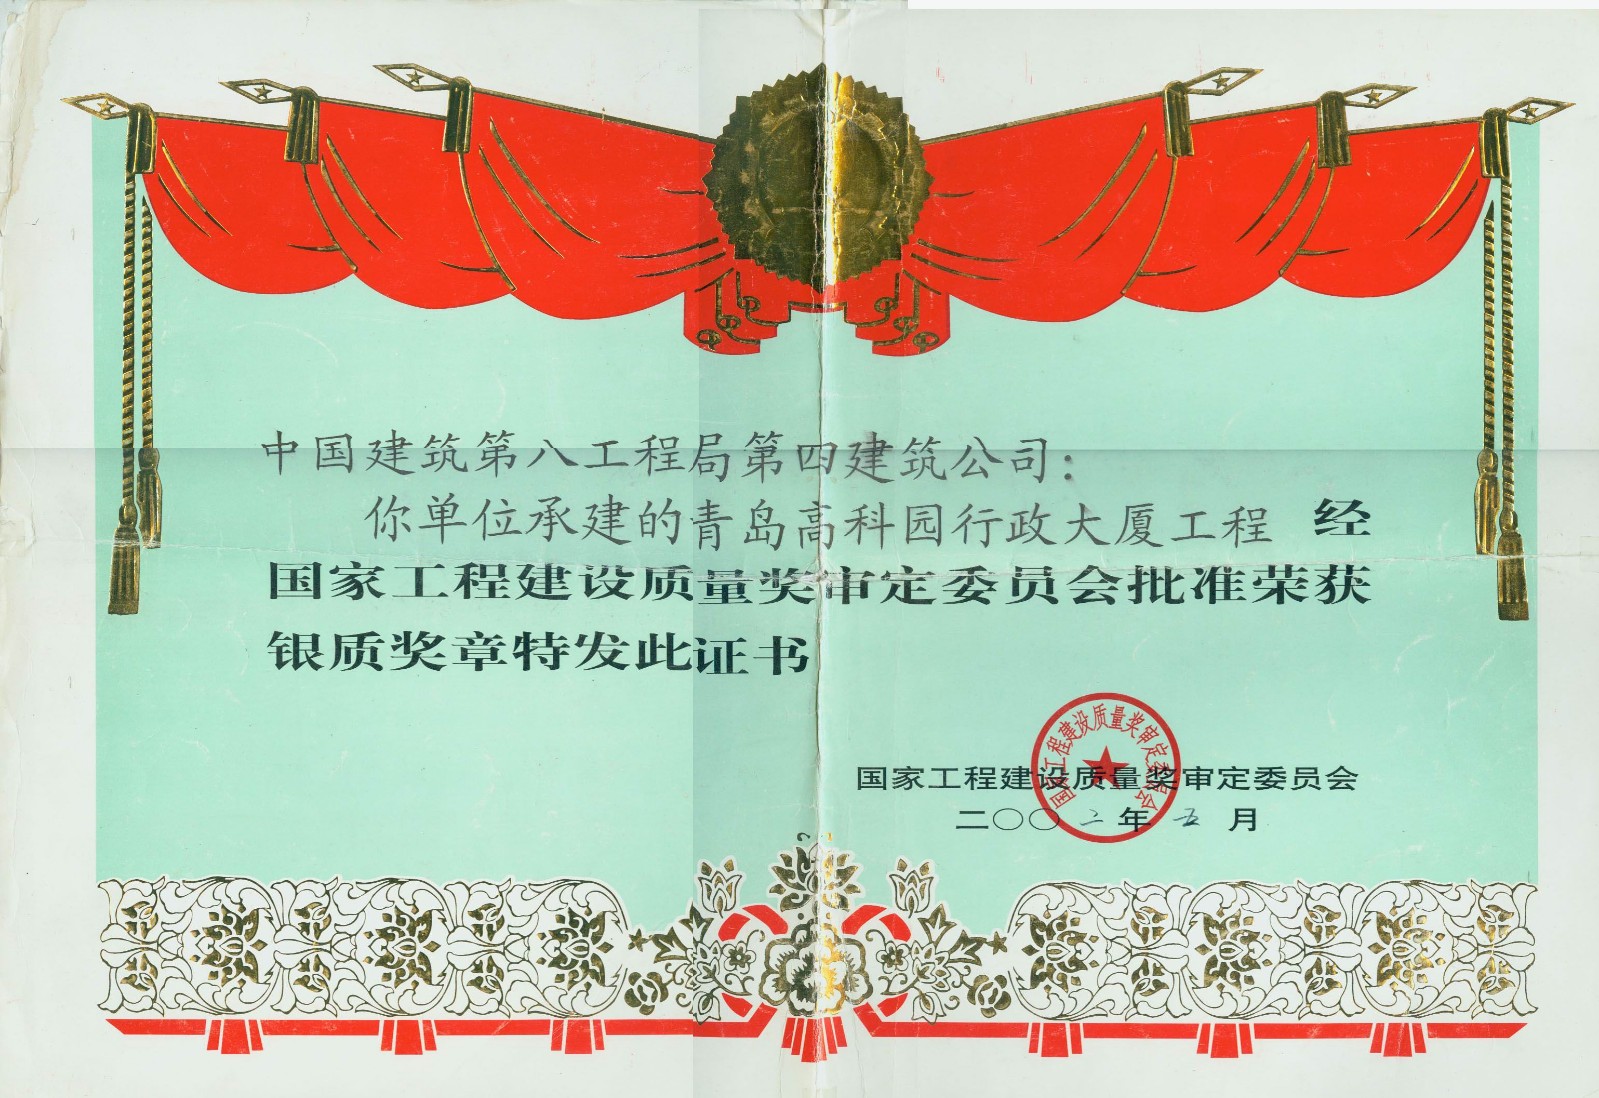 中国建筑第八工程局第四建筑公司：
你单位承建的青岛高科园行政大厦工程 经
国家工程建设质量奖审定委员会批准荣获
银质奖章特发此证书
国家工程建设质量奖审定委员会
国家工程建设质量奖审定委员会
二〇〇二年五月